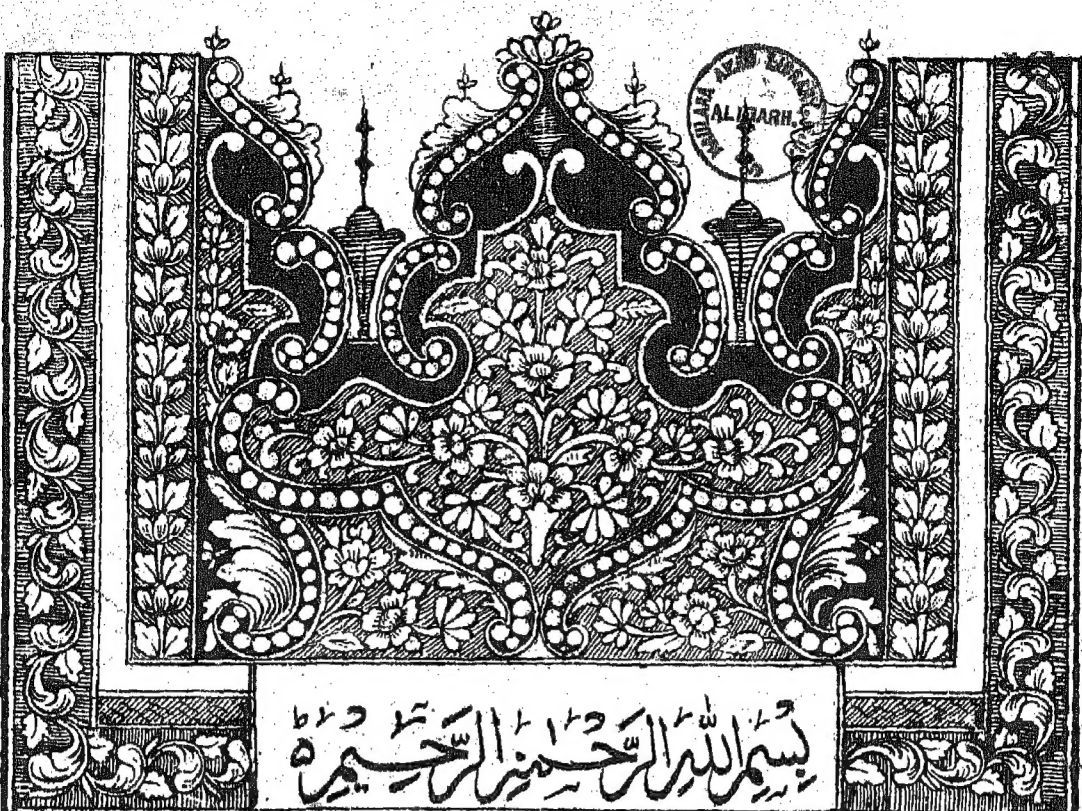 MAULANA AZAD LIBRARY
ALIGARH
بِسْمِ اللهِ الرَّحْمٰنِ الرَّحِيْمِ ه